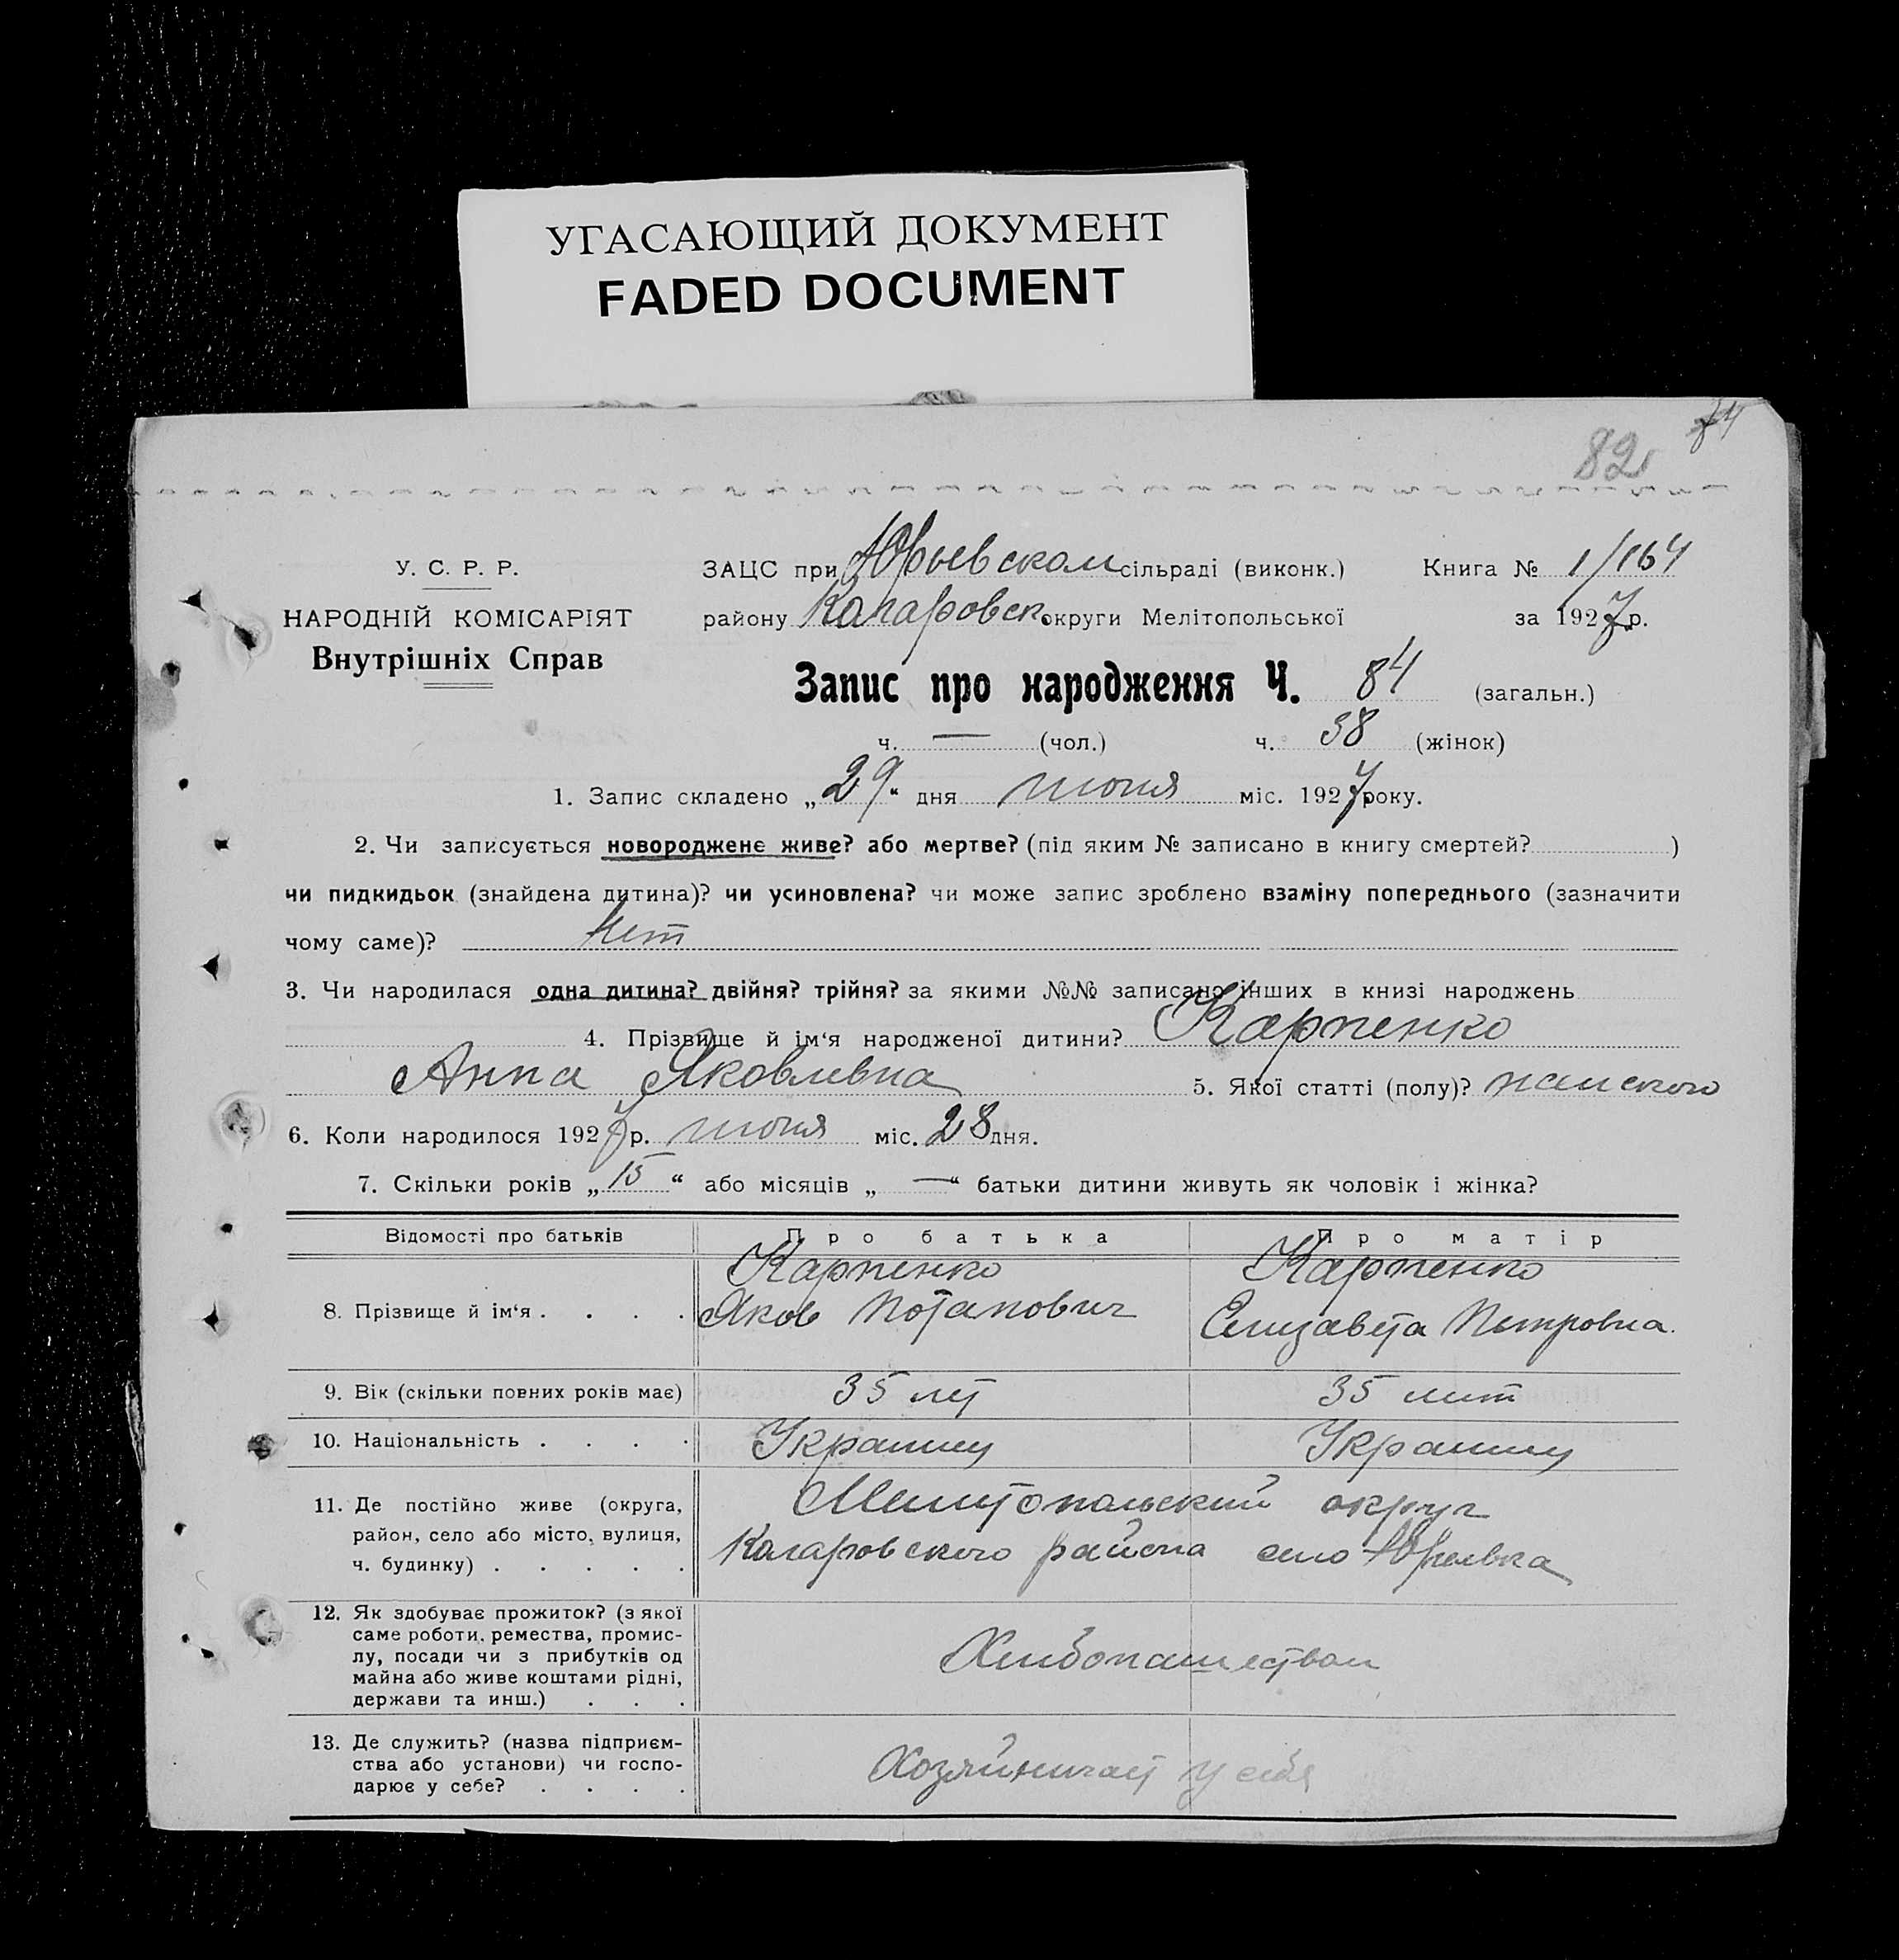 УГАСАЮЩИЙ ДОКУМЕНТ
FADED DOCUMENT
82
У. С. Р. Р.
НАРОДНІЙ КОМІСАРІЯТ
Внутрішніх Справ
ЗАЦС при Юрьевском сільраді (виконк.) Книга № 1/164
району округи Мелітопольської за 1927 р.
Запис про народження Ч. 84 (загальн.)
ч. — (чол.) ч. 38 (жінок)
1. Запис складено „29“ дня июня міс. 1927 року.
2. Чи записується новороджене живе? або мертве? (під яким № записано в книгу смертей? )
чи пидкидьок (знайдена дитина)? чи усиновлена? чи може запис зроблено взаміну попереднього (зазначити
чому саме)? Нет
3. Чи народилася одна дитина? двійня? трійня? за якими №№ записано інших в книзі народжень
4. Прізвище й ім‘я народженої дитини? Карпенко
Анна Яковлевна 5. Якої статті (полу)?
6. Коли народилося 1927 р. июня міс. 28 дня.
7. Скільки років „15“ або місяців „—“ батьки дитини живуть як чоловік і жінка?
Відомості про батьків Про батька Про матір
8. Прізвище й ім‘я . . . .
Карпенко
Яков Потапович
Карпенко
Елизавета Петровна.
9. Вік (скільки повних років має) 35 лет 35 лит
10. Національність . . . . Украинц Украинц
11. Де постійно живе (округа,
район, село або місто, вулиця,
ч. будинку) . . . . .
Мелитопольский округ
района село Юрьевка
12. Як здобуває прожиток? (з якої
саме роботи, ремества, промис-
лу, посади чи з прибутків од
майна або живе коштами рідні,
держави та инш.) . . .
Хлибопашеством
13. Де служить? (назва підприєм-
ства або установи) чи госпо-
дарює у себе? . . . .
Хозяйничает у себя